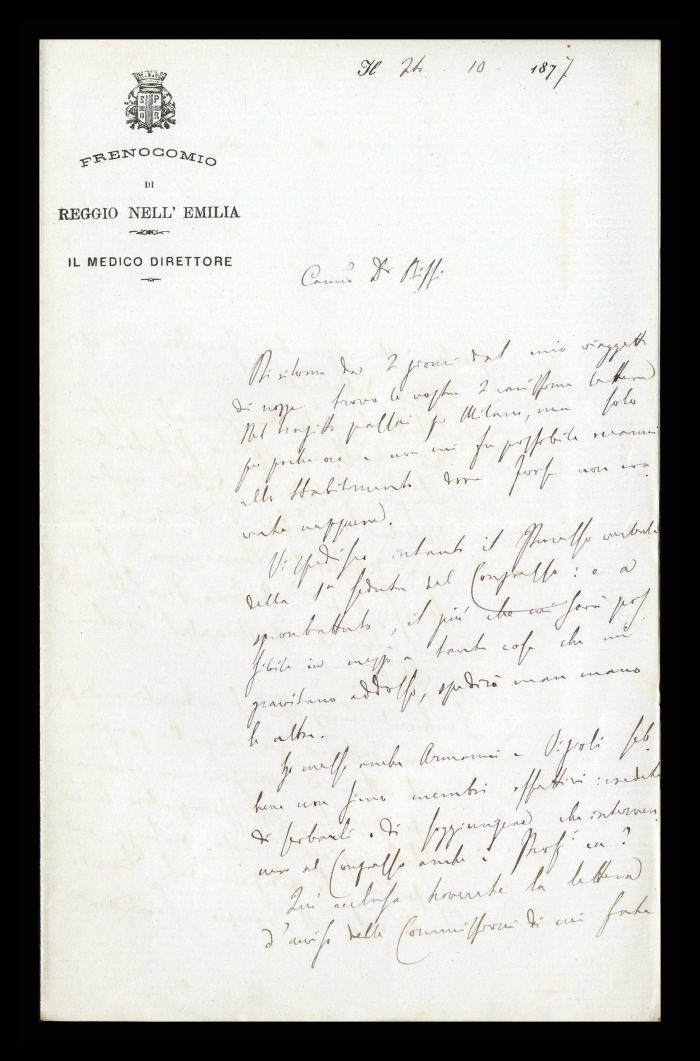 Il 26 - 10 - 1877
S P
Q R
FRENOCOMIO
DI
REGGIO NELL' EMILIA
IL MEDICO DIRETTORE
Dr Biffi.
Di ritorno da 2 giorni dal mio viaggetto
di nozze trovo le vostre 2 carissime lettere
Nel tragitto passai per Milano, ma solo
per poche ore e non mi fu possibile recarmi
allo Stabilimento dove forse non era-
vate neppure.
Vi spedisco intanto il Processo verbale
della 1a seduta del Congresso: e a
spron battuto, il più che mi sarà pos
sibile in mezzo a tante cose che mi
gravitano addosso, spedirò man mano
le altre.
Ho messo anche Armanni e Vizioli seb
bene non sieno membri effettivi: credete
di serbarli o di soggiungere che interven
nero al Congresso anche i Prof.i ec?
Qui acclusa troverete la lettera
d'avviso delle Commissioni di cui fate